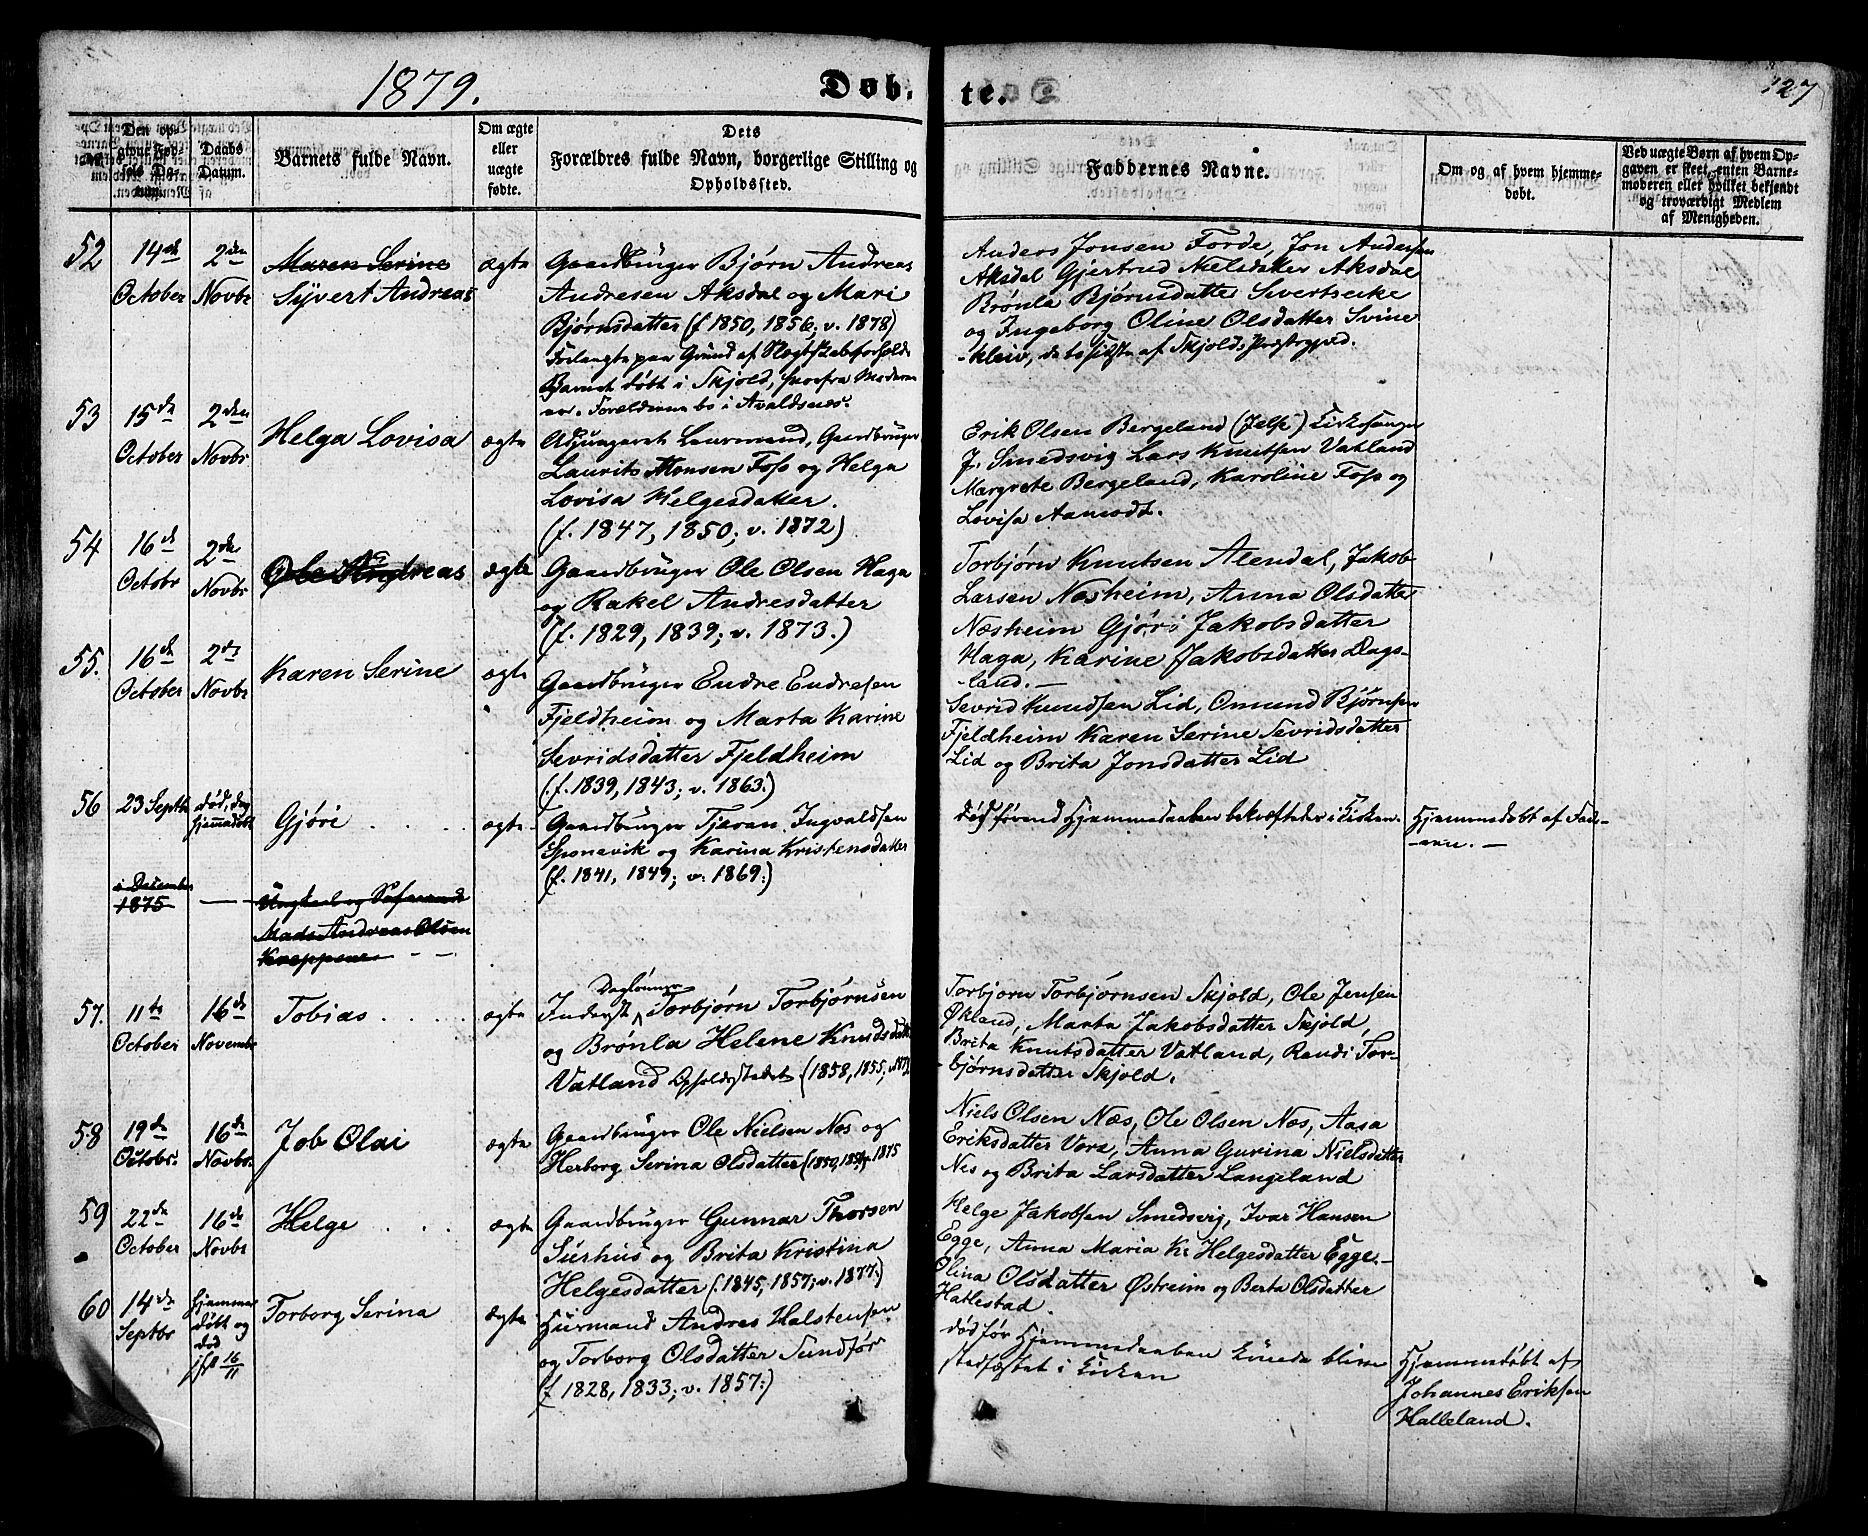 1879. Døb- te. 127
Den opgivne Fødsels Datum.
Daabs Datum.
Barnets fulde Navn.
Om ægte eller uægte fødte.
Dets Forældres fulde Navn, borgerlige Stilling og Opholdssted.
Faddernes Navne.
Om og af hvem hjemmedøbt.
Ved uægte Børn af hvem Opgaven er skeet, enten Barnemoderen eller hvilket bekjendt og troværdigt Medlem af Menigheden.
52 14de October 2den Novbr Maren Serine Syvert Andreas ægte
Gaardbruger Bjørn Andreas
Andresen Aksdal og Mari
Bjørnsdatter (f 1850, 1856; v. 1878)
Forlangte paa Grund af Slægtskabsforhold
Barnet døbt i Skjold, hvorfra Moderen
var. Forældrene bo i Avaldsnes.
Anders Jonsen Førde, Jon Andersen
Aksdal Gjertrud Nielsdatter Aksdal
Brønla Bjørnsdatter
og Ingeborg Oline Olsdatter Svine
-kleiv, de to sidste af Skjolds Præstegjeld.
53 15de October 2den Novbr Helga Lovisa ægte
Gaardbruger
Laurits Monsen Foss og Helga
Lovisa Helgesdatter.
(f. 1847, 1850; v. 1872)
Erik Olsen Bergeland (Jelse) Kirkesanger
J. Smedsvig Lars Knutsen Vatland
Margrete Bergeland, Karoline Foss og
Lovisa Aamodt.
54 16de Octobr 2den Novbr Ole Andreas ægte
Gaardbruger Ole Olsen Haga
og Rakel Andresdatter
(f. 1829, 1839; v. 1873.)
Torbjørn Knutsen Alendal, Jakob
Larsen Næsheim, Anna Olsdatter
Næsheim Gjøri Jakobsdatter
Haga, Karine Jakobsdatter Dags-
land. —
55. 16de October 2den Novbr Karen Serine ægte
Gaardbruger Endre Endresen
Fjeldheim og Marta Karine
Sevridsdatter Fjeldheim
(f. 1839, 1843; v. 1863.)
Sevrid Knudsen Lid, Omund Bjørnsen
Fjeldheim Karen Serine Sevridsdatter
Lid og Brita Jonsdatter Lid
56 23 Septbr død, dog hjemmedøbt Gjøri ægte
Gaardbruger Tjeran Ingvaldsen
Sponevik og Karina Kristensdatter
(f. 1841, 1849; v. 1869:)
død førend Hjemmedaaben bekræftedes i Kirken.
Hjemmedøbt af Fad-
-eren. —
i December
1875 — Ungkarl og
Mads Andreas Olsen
57. 11te October 16de Novembr Tobias ægte
Daglønner
Inderst Torbjørn Torbjørnsen
og Brønla Helene Knudsdatter
Vatland Opholdsstedet (1858, 1855,
Torbjørn Torbjørnsen Skjold, Ole Jensen
Økland, Marta Jakobsdatter Skjold,
Brita Knutsdatter Vatland, Randi Tor-
bjørnsdatter Skjold.
58 19de Octobr. 16de Novbr. Job Olai ægte
Gaardbruger Ole Nielsen Næs og
Herborg Serina Olsdatter (1850, 1875
Niels Olsen Næs, Ole Olsen Næs, Aasa
Eriksdatter Vora, Anna Gurina Nielsdatter
Nes og Brita Larsdatter Langeland
59 22de October 16de Novbr Helge ægte
Gaardbruger Gunnar Thorsen
Surhus og Brita Kristina
Helgesdatter (1845, 1857; v. 1877.)
Helge Jakobsen Smedsvig, Ivar Hansen
Egge, Anna Maria K. Helgesdatter Egge.-
Olina Olsdatter Østreim og Berta Olsdatter
Hatlestad.
60 14de Septbr hjemmedøbt og død jfr 16/11 Torborg Serina ægte
Husmand Andres Halstensen
og Torborg Olsdatter Sundfør
(f 1828, 1833; v. 1857:)
død før Hjemmedaaben kunde blive
stadfæstet i Kirken
Hjemmedøbt af
Johannes Eriksen
Halleland.